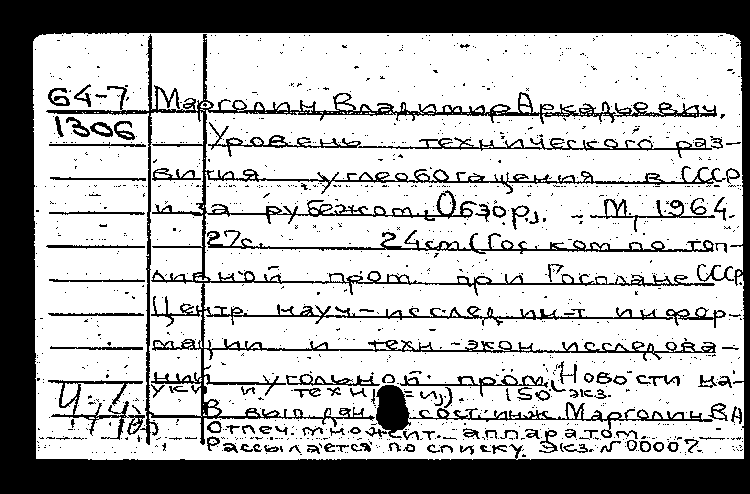 64-7 Марголин, Владимир Аркадьевич.
1306 Уровень технического раз-
вития углеобогащения в СССР
и за рубежом. [Обзор]. - М, 1964.
27с. 24см (Гос. ком по топ-
ливной пром. при Госплане СССР
Центр. науч.-исслед ин-т инфор-
мации и техн.-экон исследова-
ний угольной пром. Новости на-
уки и техники). 150 экз.
В вып дан. сост. инж. Марголин В А
Отпеч. множит. аппаратом.
Рассылается по списку. Экз. № 00007.